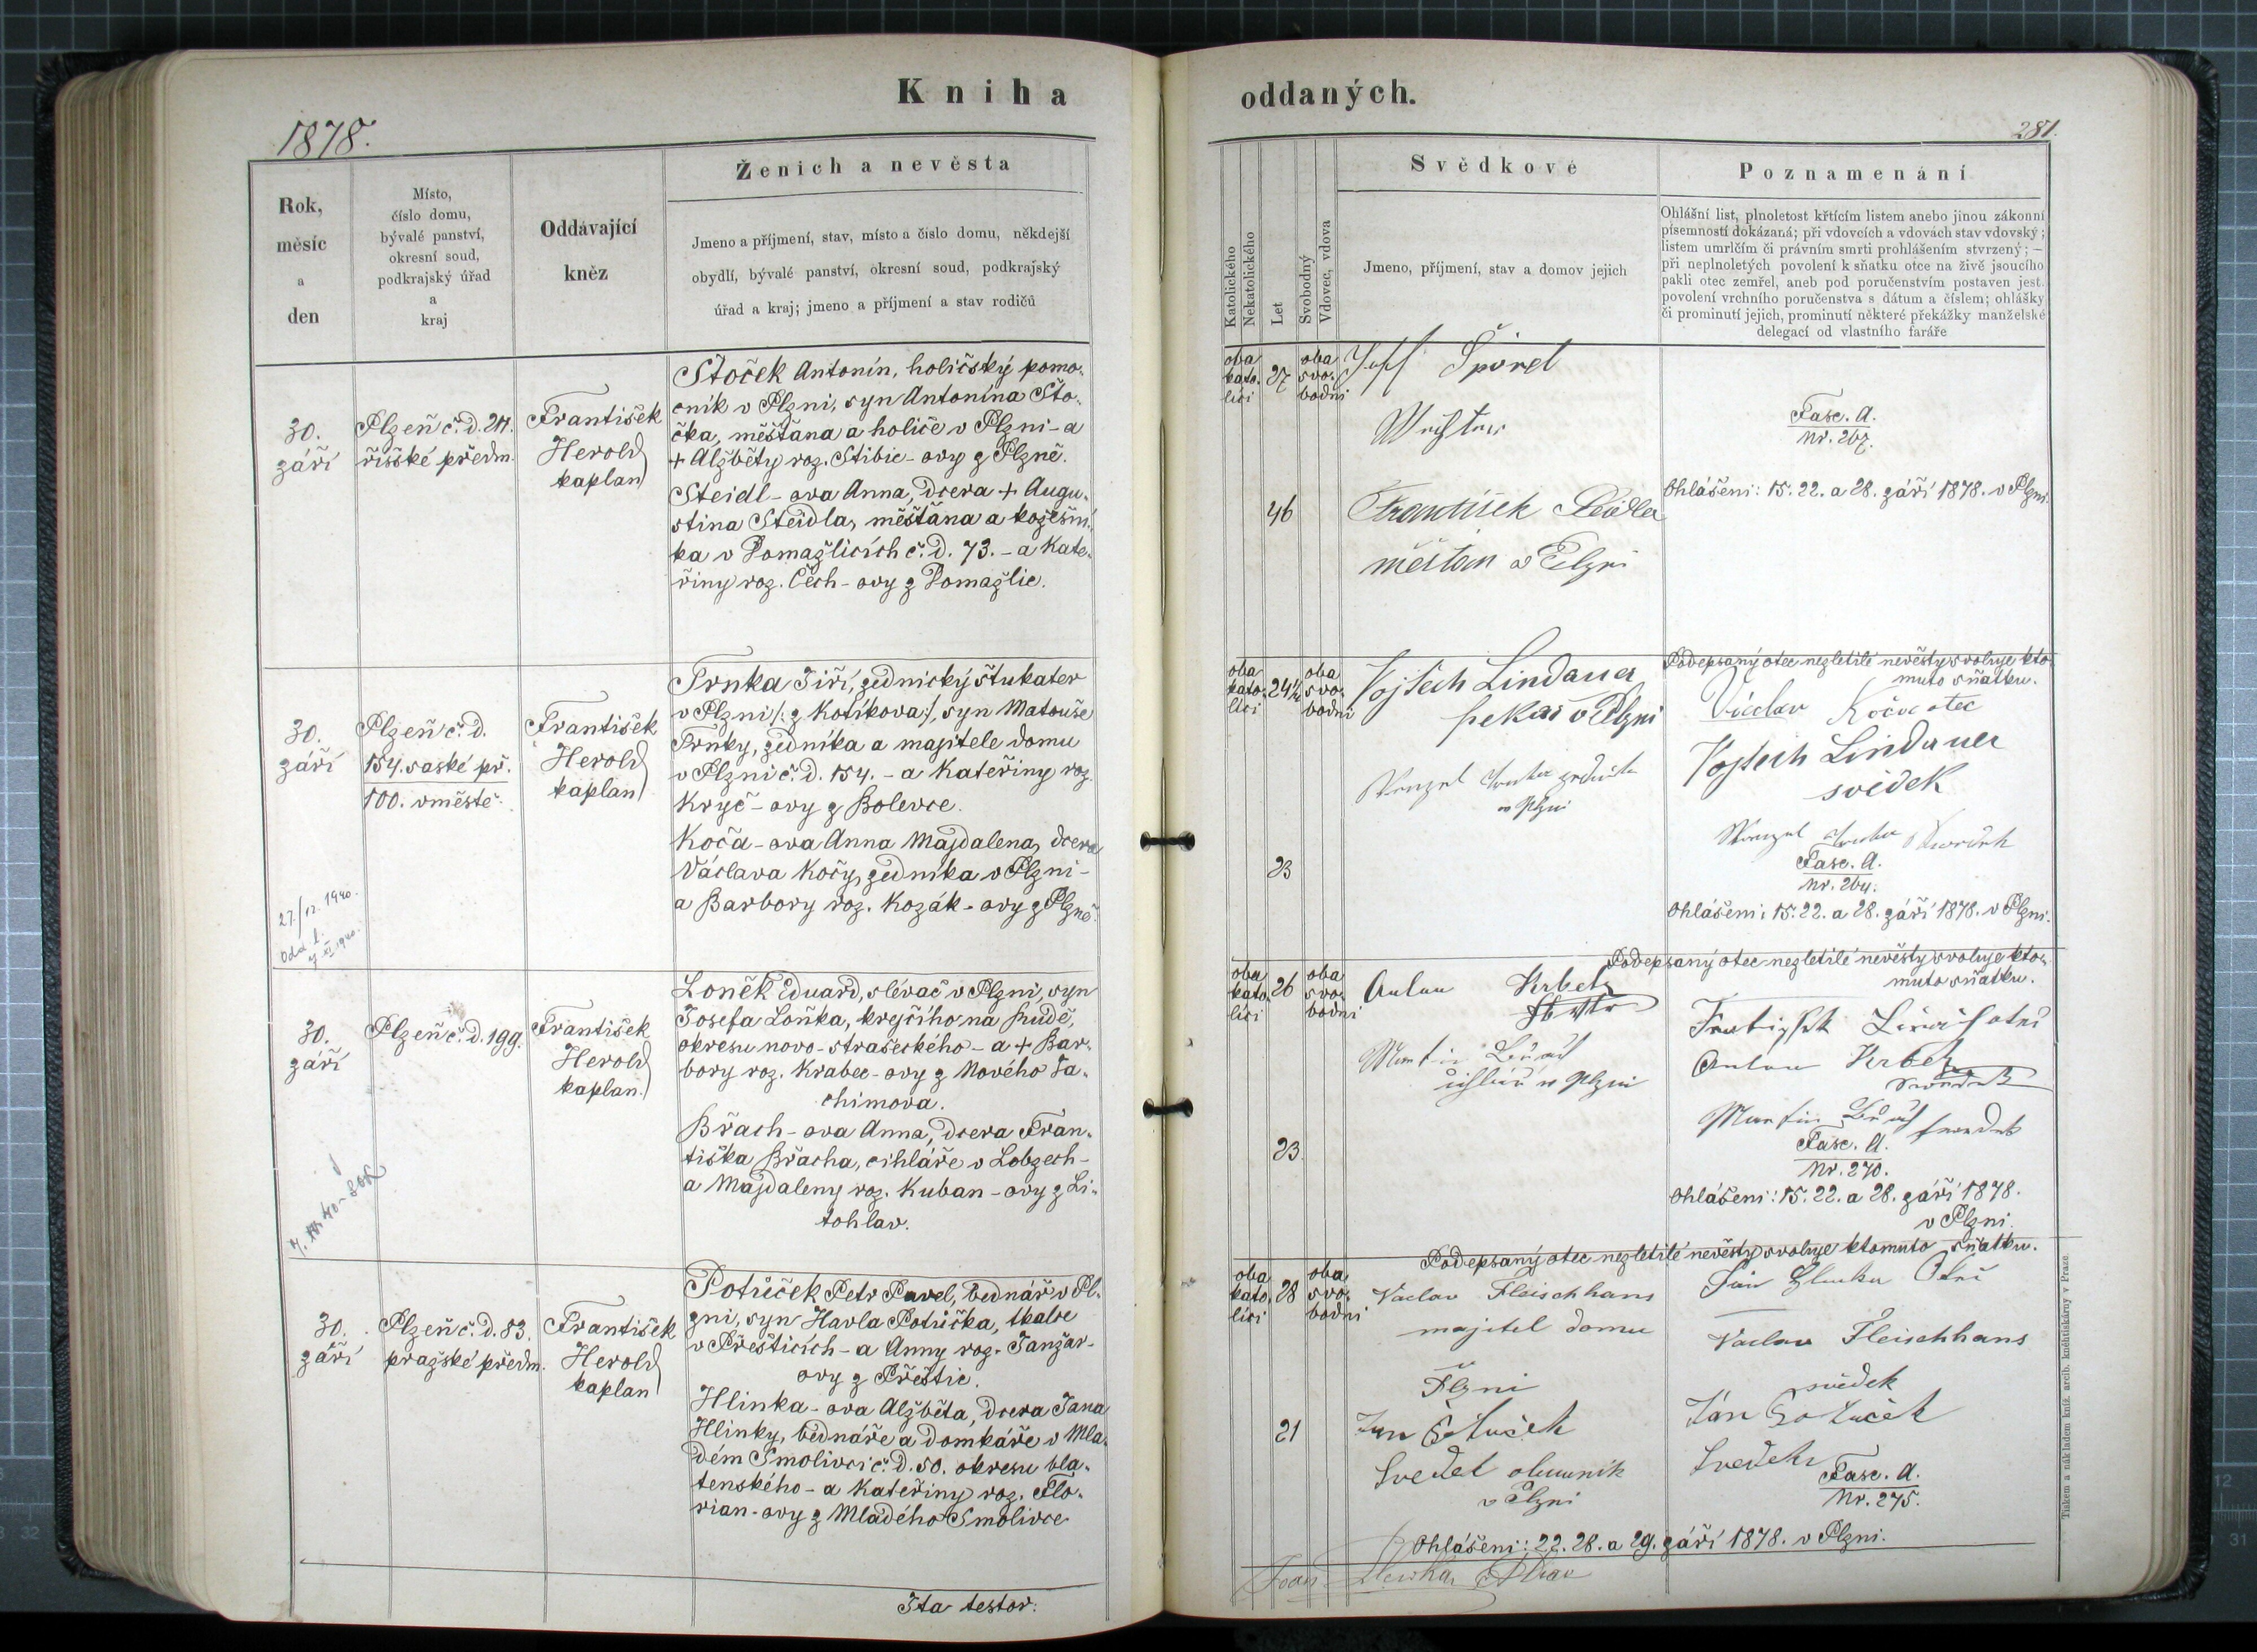 Kniha
1878.
Rok,
měsíc
a
den
Místo,
číslo domu,
bývalé panství,
okresní soud,
podkrajský úřad
a
kraj
Oddávající
kněz
Ženich a nevěsta
Jmeno a příjmení, stav, místo a číslo domu, někdejší
obydlí, bývalé panství, okresní soud, podkrajský
úřad a kraj; jmeno a příjmení a stav rodičů
30.
září
Plzeň č. d. 24.
říšské předm.
František
Herold
kaplan
Stoček Antonín, holičský pomo-
cník v Plzni, syn Antonína Sto-
čka, měšťana a holiče v Plzni - a
+ Alžběty roz. Stibic-ovy z Plzně.
Steidl-ova Anna, dcera + Augu-
stina Steidla, měšťana a kožešní-
ka v Domažlicích č. d. 73. - a Kate-
řiny roz. Čech-ovy z Domažlic.
30.
září
Plzeň č. d.
154. saské př.
100. vměstě.
František
Herold
kaplan
Trnka Jiří, zednický štukater
v Plzni /: z Kotíkova :/, syn Matouše
Trnky, zedníka a majitele domu
v Plzni č. d. 154. - a Kateřiny roz.
Kryč-ovy z Bolevce.
Koča-ova Anna Majdalena, dcera
Václava Kočy, zedníka v Plzni -
a Barbory roz. Kozák-ovy z Plzně.
27./12. 1940.
30.
září
Plzeň č. d. 199.
František
Herold
kaplan.
Loněk Eduard, slévač v Plzni, syn
Josefa Loňka, krejčího na Rudě,
okresu novo-strašeckého - a + Bar-
bory roz. Krabec-ovy z Nového Ja-
chimova.
Břach-ova Anna, dcera Fran-
tiška Břacha, cihláře v Lobzech -
a Majdaleny roz. Kuban-ovy z Li-
tohlav.
30.
září
Plzeň č. d. 83.
pražské předm.
František
Herold
kaplan
Potůček Petr Pavel, bednář v Pl-
zni, syn Havla Potůčka, tkalce
v Přešticích - a Anny roz. Janžar-
ovy z Přeštic.
Hlinka-ova Alžběta, dcera Jana
Hlinky, bednáře a domkáře v Mla-
dém Smolivci č. d. 50. okresu bla-
tenského - a Kateřiny roz. Flo-
rian-ovy z Mladého Smolivce
Ita testor.
oddaných.
281.
Katolického
Nekatolického
Let
Svobodný
Vdovec, vdova
Svědkové
Jmeno, příjmení, stav a domov jejich
Poznamenání
Ohlášní list, plnoletost křtícím listem anebo jinou zákonní
písemností dokázaná; při vdovcích a vdovách stav vdovský;
listem umrlčím či právním smrti prohlášením stvrzený; —
při neplnoletých povolení k sňatku otce na živě jsoucího
pakli otec zemřel, aneb pod poručenstvím postaven jest.
povolení vrchního poručenstva s dátum a číslem; ohlášky
či prominutí jejich, prominutí některé překážky manželské
delegací od vlastního faráře
oba
kato-
líci
27
oba
svo-
bodni
Špörel
Fasc. A.
Nr. 267.
Ohlášeni: 15. 22. a 28. září 1878. v Plzni.
46
František
měšťan v Plzni
oba
kato-
líci
24½
oba
svo-
bodni
Vojtěch Lindauer
pekař v Plzni
Podepsaný otec nezletilé nevěsty svoluje kto-
muto sňatku.
Václav Koča otec
Vojtěch Lindauer
svědek
Wenzel
v Plzni
Wenzel
23
Fasc. A.
Nr. 264.
Ohlášeni: 15. 22. a 28. září 1878. v Plzni.
oba
kato-
líci
26
oba
svo-
bodni
Anton Krbetz
Podepsaný otec nezletilé nevěsty svoluje kto-
muto sňatku.
Martin
v Plzni
Anton Krbetz
Martin
23.
Fasc. A.
Nr. 270.
Ohlášeni: 15. 22. a 28. září 1878.
v Plzni.
Podepsaný otec nezletilé nevěsty svoluje ktomuto sňatku.
oba
kato-
líci
28
oba
svo-
bodni
Vaclav Fleischhans
majitel domu
Plzni
Vaclav Fleischhans
svědek
21
Jan Potuček
v Plzni
Ján Potuček
Fasc. A.
Nr. 275.
Ohlášeni: 22. 28. a 29. září 1878. v Plzni.
Tiskem a nákladem kníž. arcib. knihtiskárny v Praze